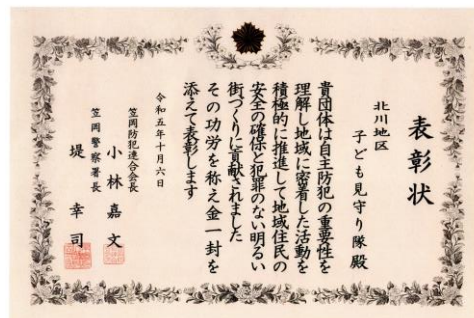 表彰状
北川地区
子ども見守り隊殿
貴団体は自主防犯の重要性を
理解し地域に密着した活動を
積極的に推進して地域住民の
安全の確保と犯罪のない明るい
街づくりに貢献されました
その功労を称え金一封を
添えて表彰します
令和五年十月六日
笠岡防犯連合会長
小林嘉文
笠岡警察署長
堤幸司